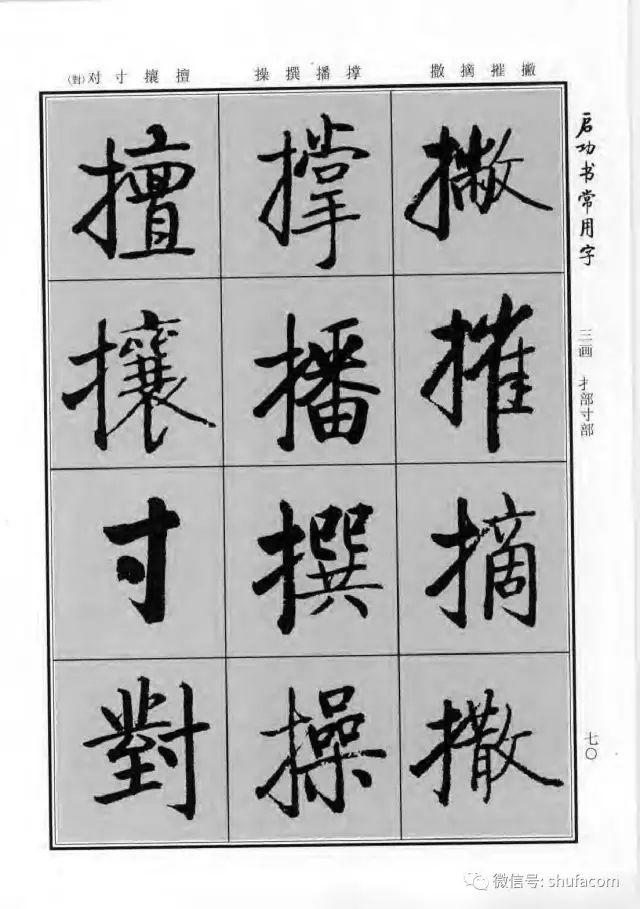 启功书常用字
三画 扌部寸部
七〇
撇摧摘撒
撑播撰操
擅攘寸对(對)
撇摧摘撒
撑播撰操
擅攘寸對
微信号: shufacom